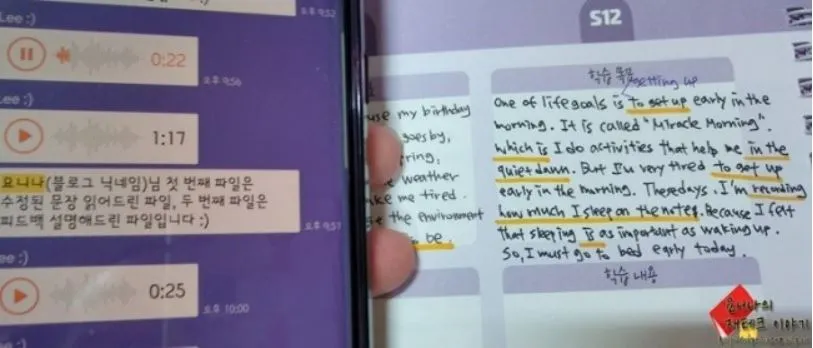 Lee :)
오후 9:52
0:22
오후 9:56
Lee :)
1:17
요니나(블로그 닉네임)님 첫 번째 파일은
수정된 문장 읽어드린 파일, 두 번째 파일은
피드백 설명해드린 파일입니다 :)
오후 9:57
ee :)
0:25
오후 10:00
use my birthday
goes by,
ring.
weather
ke me tired.
e the environment
be.
S12
학습 목표
getting up
One of life goals is to get up early in the
morning. It is called "Miracle Morning".
which is I do activities that help me in the
quiet dawn. But I'm very tired to get up
early in the morning. These days. I'm recording
how much I sleep on the notes. Because I felt
that sleeping is as important as waking up.
So, I must go to bed early today.
학습 내용
요니나의
재테크 이야기